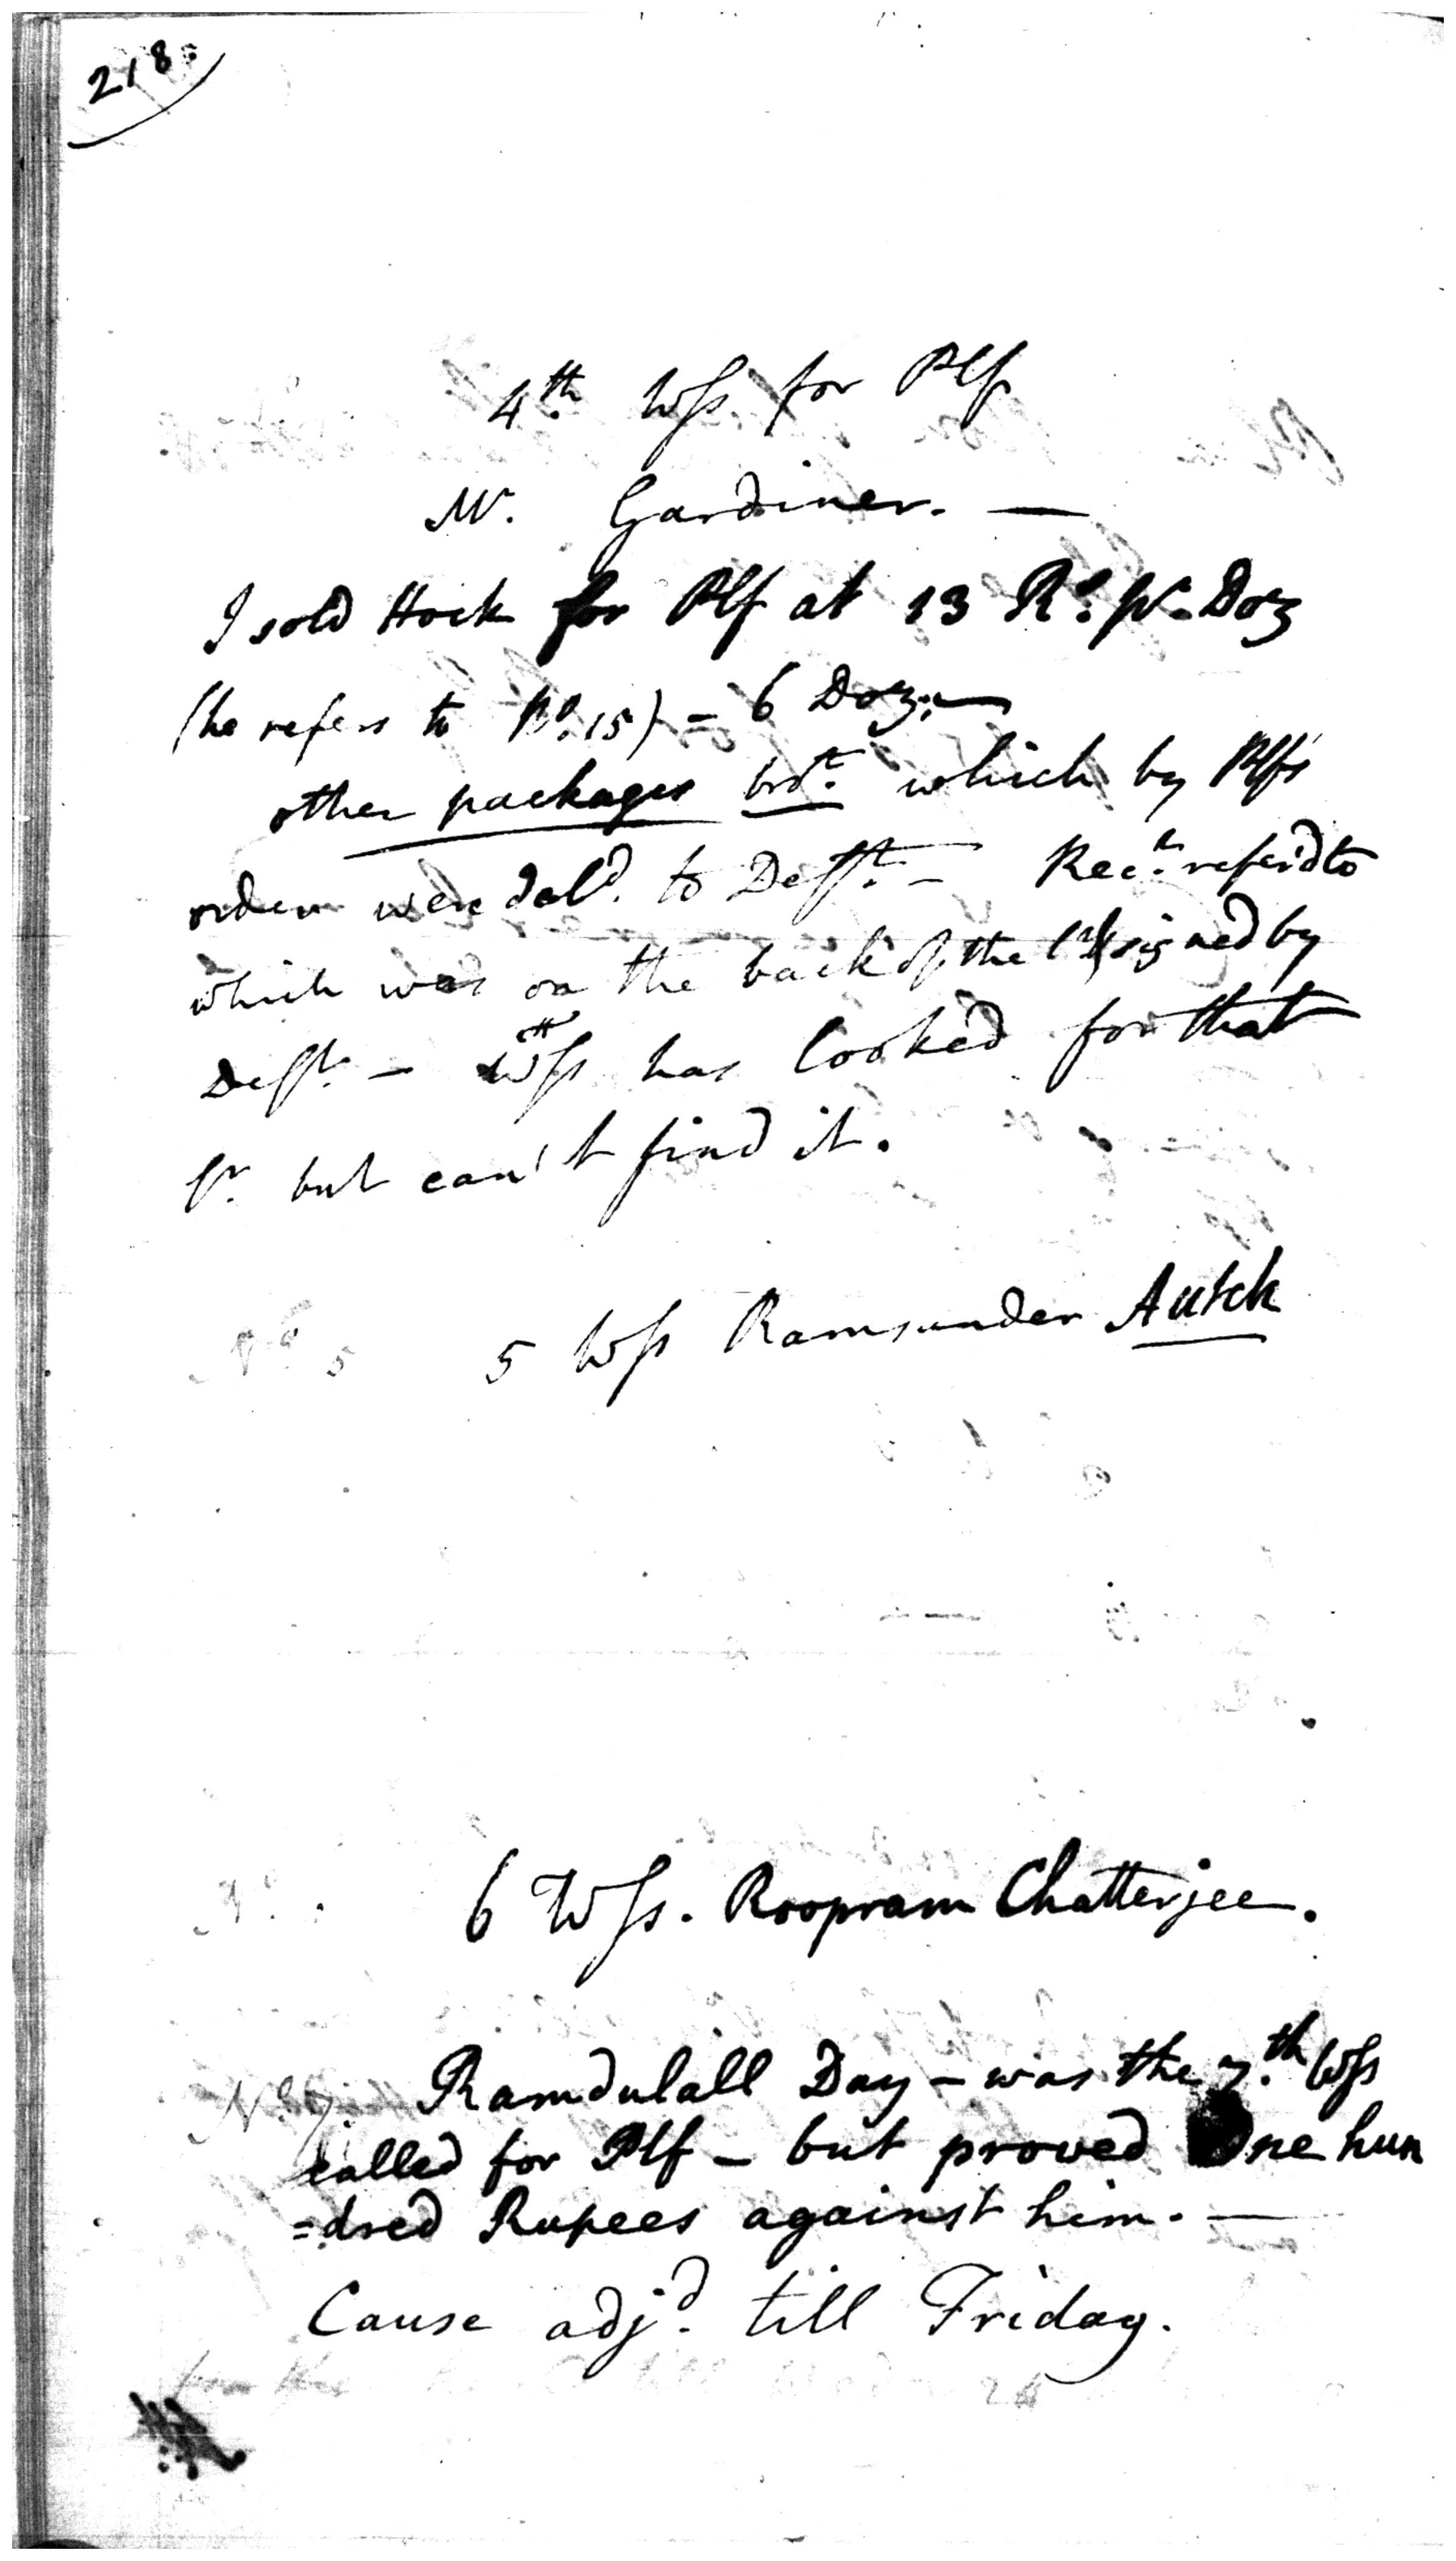 218.
4th. Wss for Plf
Mr. Gardiner. —
I sold Hock for Plf at 13 Rs. pr. Doz
(he refers to No. 15) = 6 Doz: —
other packages brot. which by Plfs
orders were deld. to Deft. — Rect. referd to
which was on the back of the signed by
Deft. — Wss has looked for that
pr. but can't find it.
5 Wss Ramsunder Autck
6 Wss. Roopram Chatterjee.
Ramdulall Day — was the 7.th Wss
called for Plf — but proved One hun
=dred Rupees against him. —
Cause adjd. till Friday.